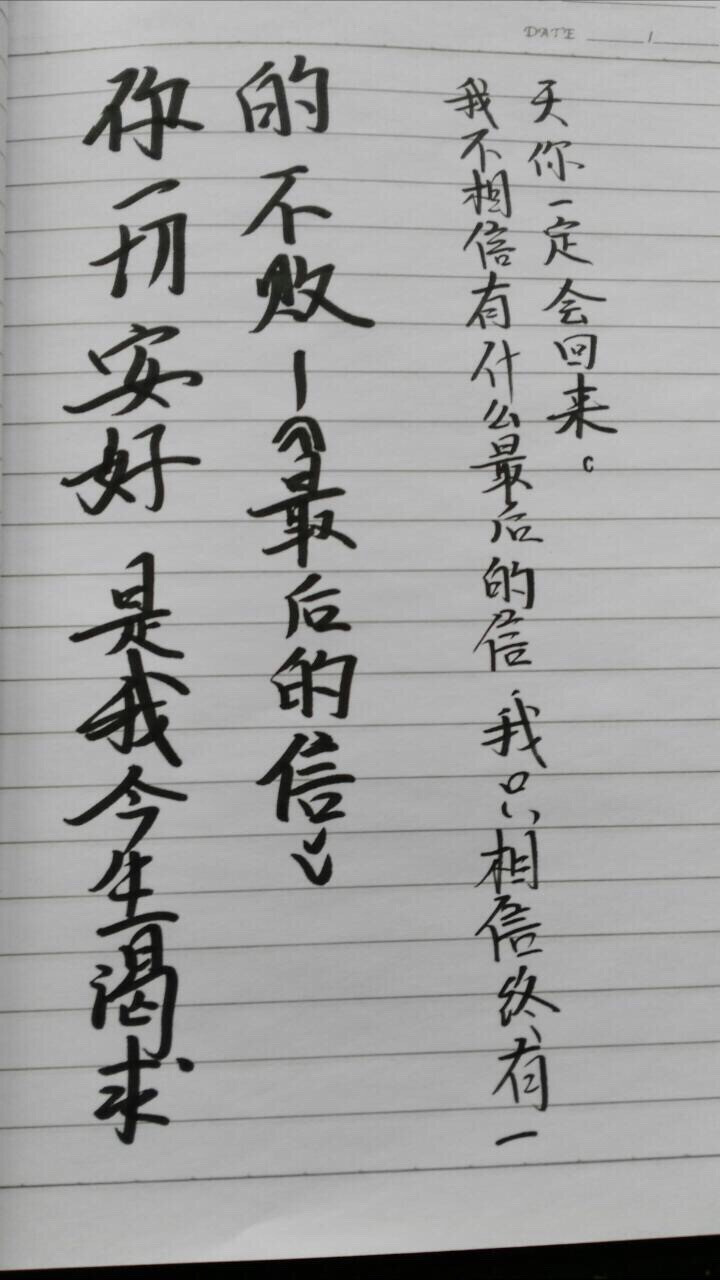 DATE
你一切安好 是我今生渴求
的不败—《最后的信》
我不相信有什么最后的信 我只相信终有一
天你一定会回来。